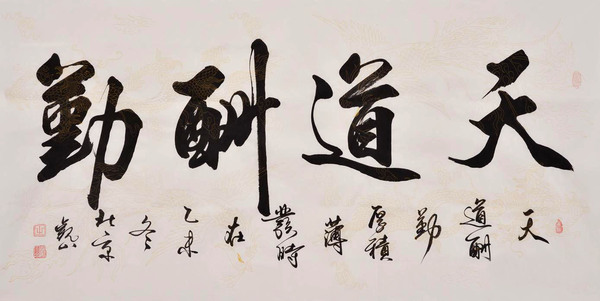 天道酬勤
天道酬勤厚積薄發時在乙未冬北京